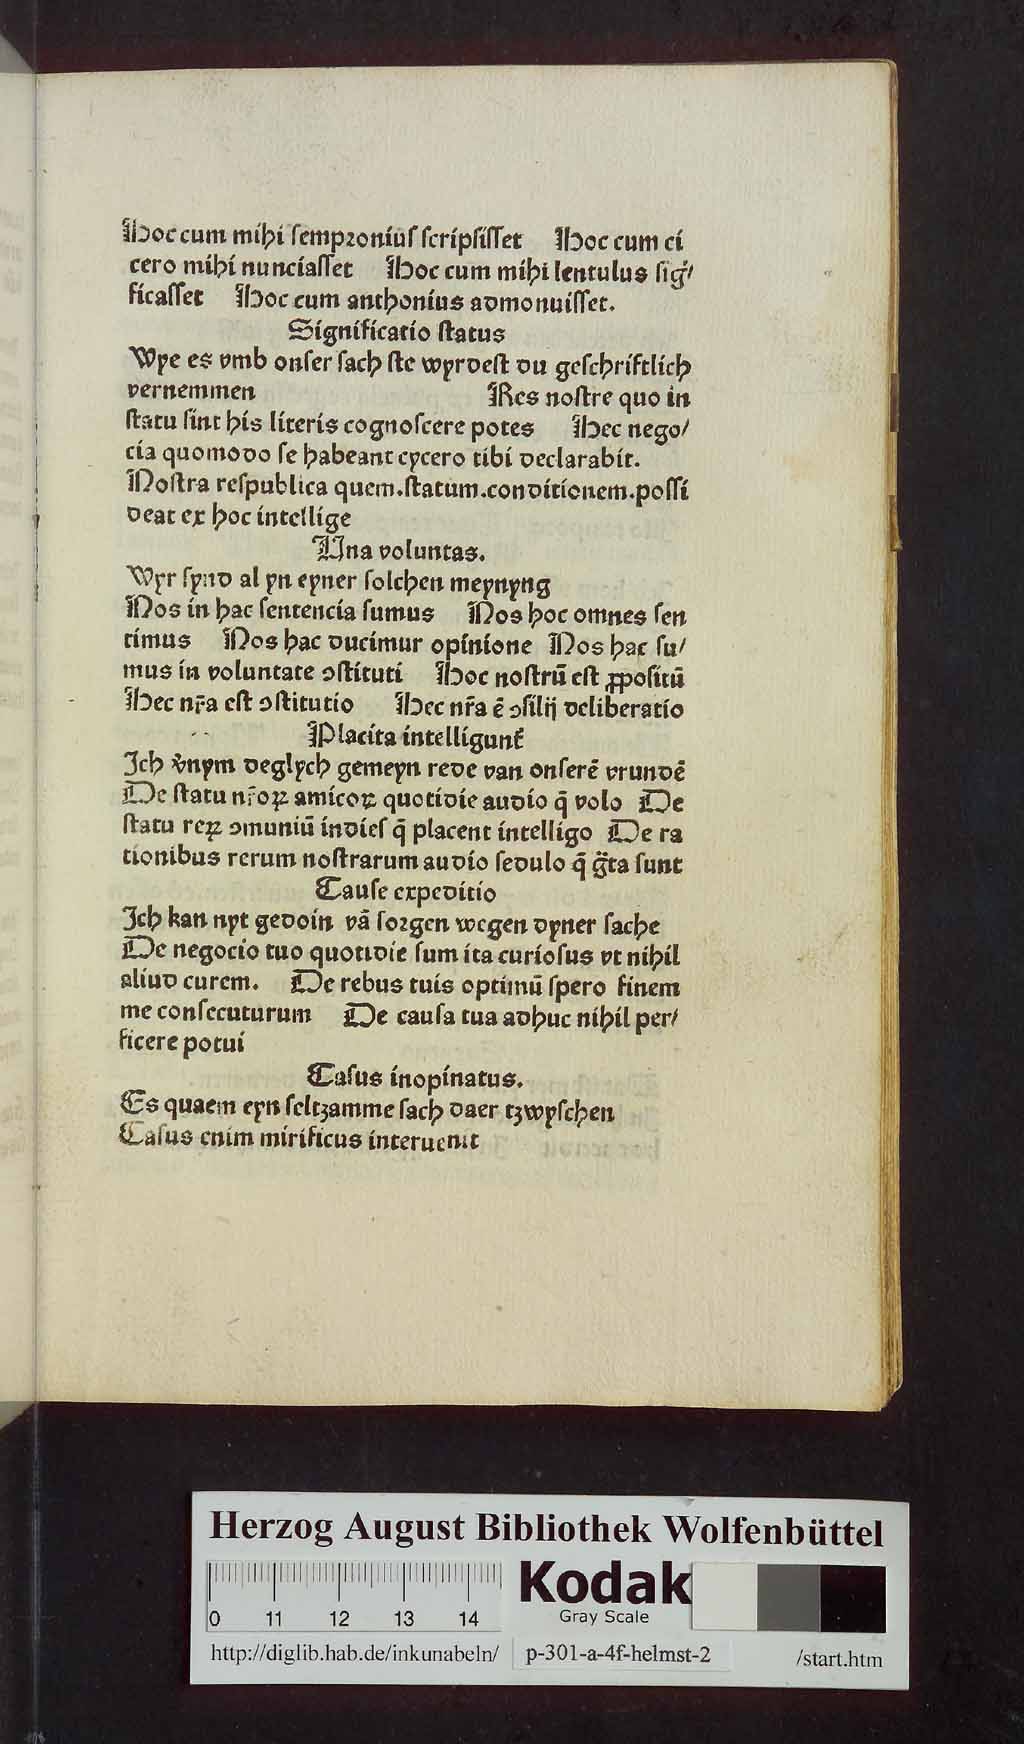 Hoc cum mihi sempronius scripsisset Hoc cum ci
cero mihi nunciasset Hoc cum mihi lentulus sig̃/
ficasset Hoc cum anthonius admonuisset.
Significatio status
Wye es vmb onser sach ste wyrdest du geschriftlich
vernemmen Res nostre quo in
statu sint his literis cognoscere potes Hec nego/
cia quomodo se habeant cycero tibi declarabit.
Nostra respublica quem.statum.conditionem.possi
deat ex hoc intellige
Una voluntas.
Wyr synd al yn eyner solchen meynyng
Nos in hac sentencia sumus Nos hoc omnes sen
timus Nos hac ducimur opinione Nos hac su/
mus in voluntate ꝯstituti Hoc nostrū est ꝓpositū
Hec nr̃a est ꝯstitutio Hec nr̃a ē ꝯsilij deliberatio
Placita intelligunt᷑
Ich v̓nym deglych gemeyn rede van onserē vrundē
De statu nr̃oꝝ amicoꝝ quotidie audio q̄ volo De
statu reꝝ ꝯmuniū indies q̄ placent intelligo De ra
tionibus rerum nostrarum audio sedulo q̄ g̃ta sunt
Cause expeditio
Ich kan nyt gedoin vā sorgen wegen dyner sache
De negocio tuo quotidie sum ita curiosus vt nihil
aliud curem. De rebus tuis optimū spero finem
me consecuturum De causa tua adhuc nihil per/
ficere potui
Casus inopinatus.
Es quaem eyn seltzamme sach daer tzwyschen
Casus enim mirificus interuenit
Herzog August Bibliothek Wolfenbüttel
0 11 12 13 14
Kodak
Gray Scale
http://diglib.hab.de/inkunabeln/ p-301-a-4f-helmst-2 /start.htm